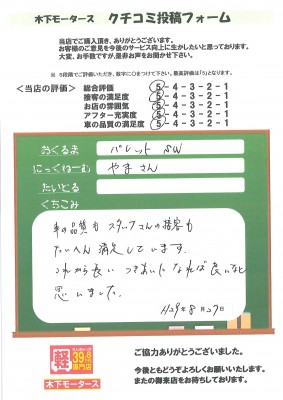 木下モータース クチコミ投稿フォーム
当店でご購入頂き、ありがとうございます。
お客様のご意見を今後のサービス向上に生かしたいと思っております。
大変、お手数ですが、是非お声をお聞かせ下さい。
※ 5段階でご評価いただき、数字に○をつけて下さい。最高評価は「5」となります。
<当店の評価>
総合評価 5-4-3-2-1
接客の満足度 5-4-3-2-1
お店の雰囲気 5-4-3-2-1
アフター充実度 5-4-3-2-1
車の品質の満足度 5-4-3-2-1
おくるま パレット SW
にっくねーむ やまさん
たいとる
くちこみ
車の品質も スタッフさんの接客も
たいへん 満足しています.
これから長い つきあいになれば良いなと
思いました.
H29年8月27日
軽
39.8
専門店
木下モータース
ご協力ありがとうございました。
今後ともどうぞよろしくお願いいたします。
またの御来店をお待ちしております。